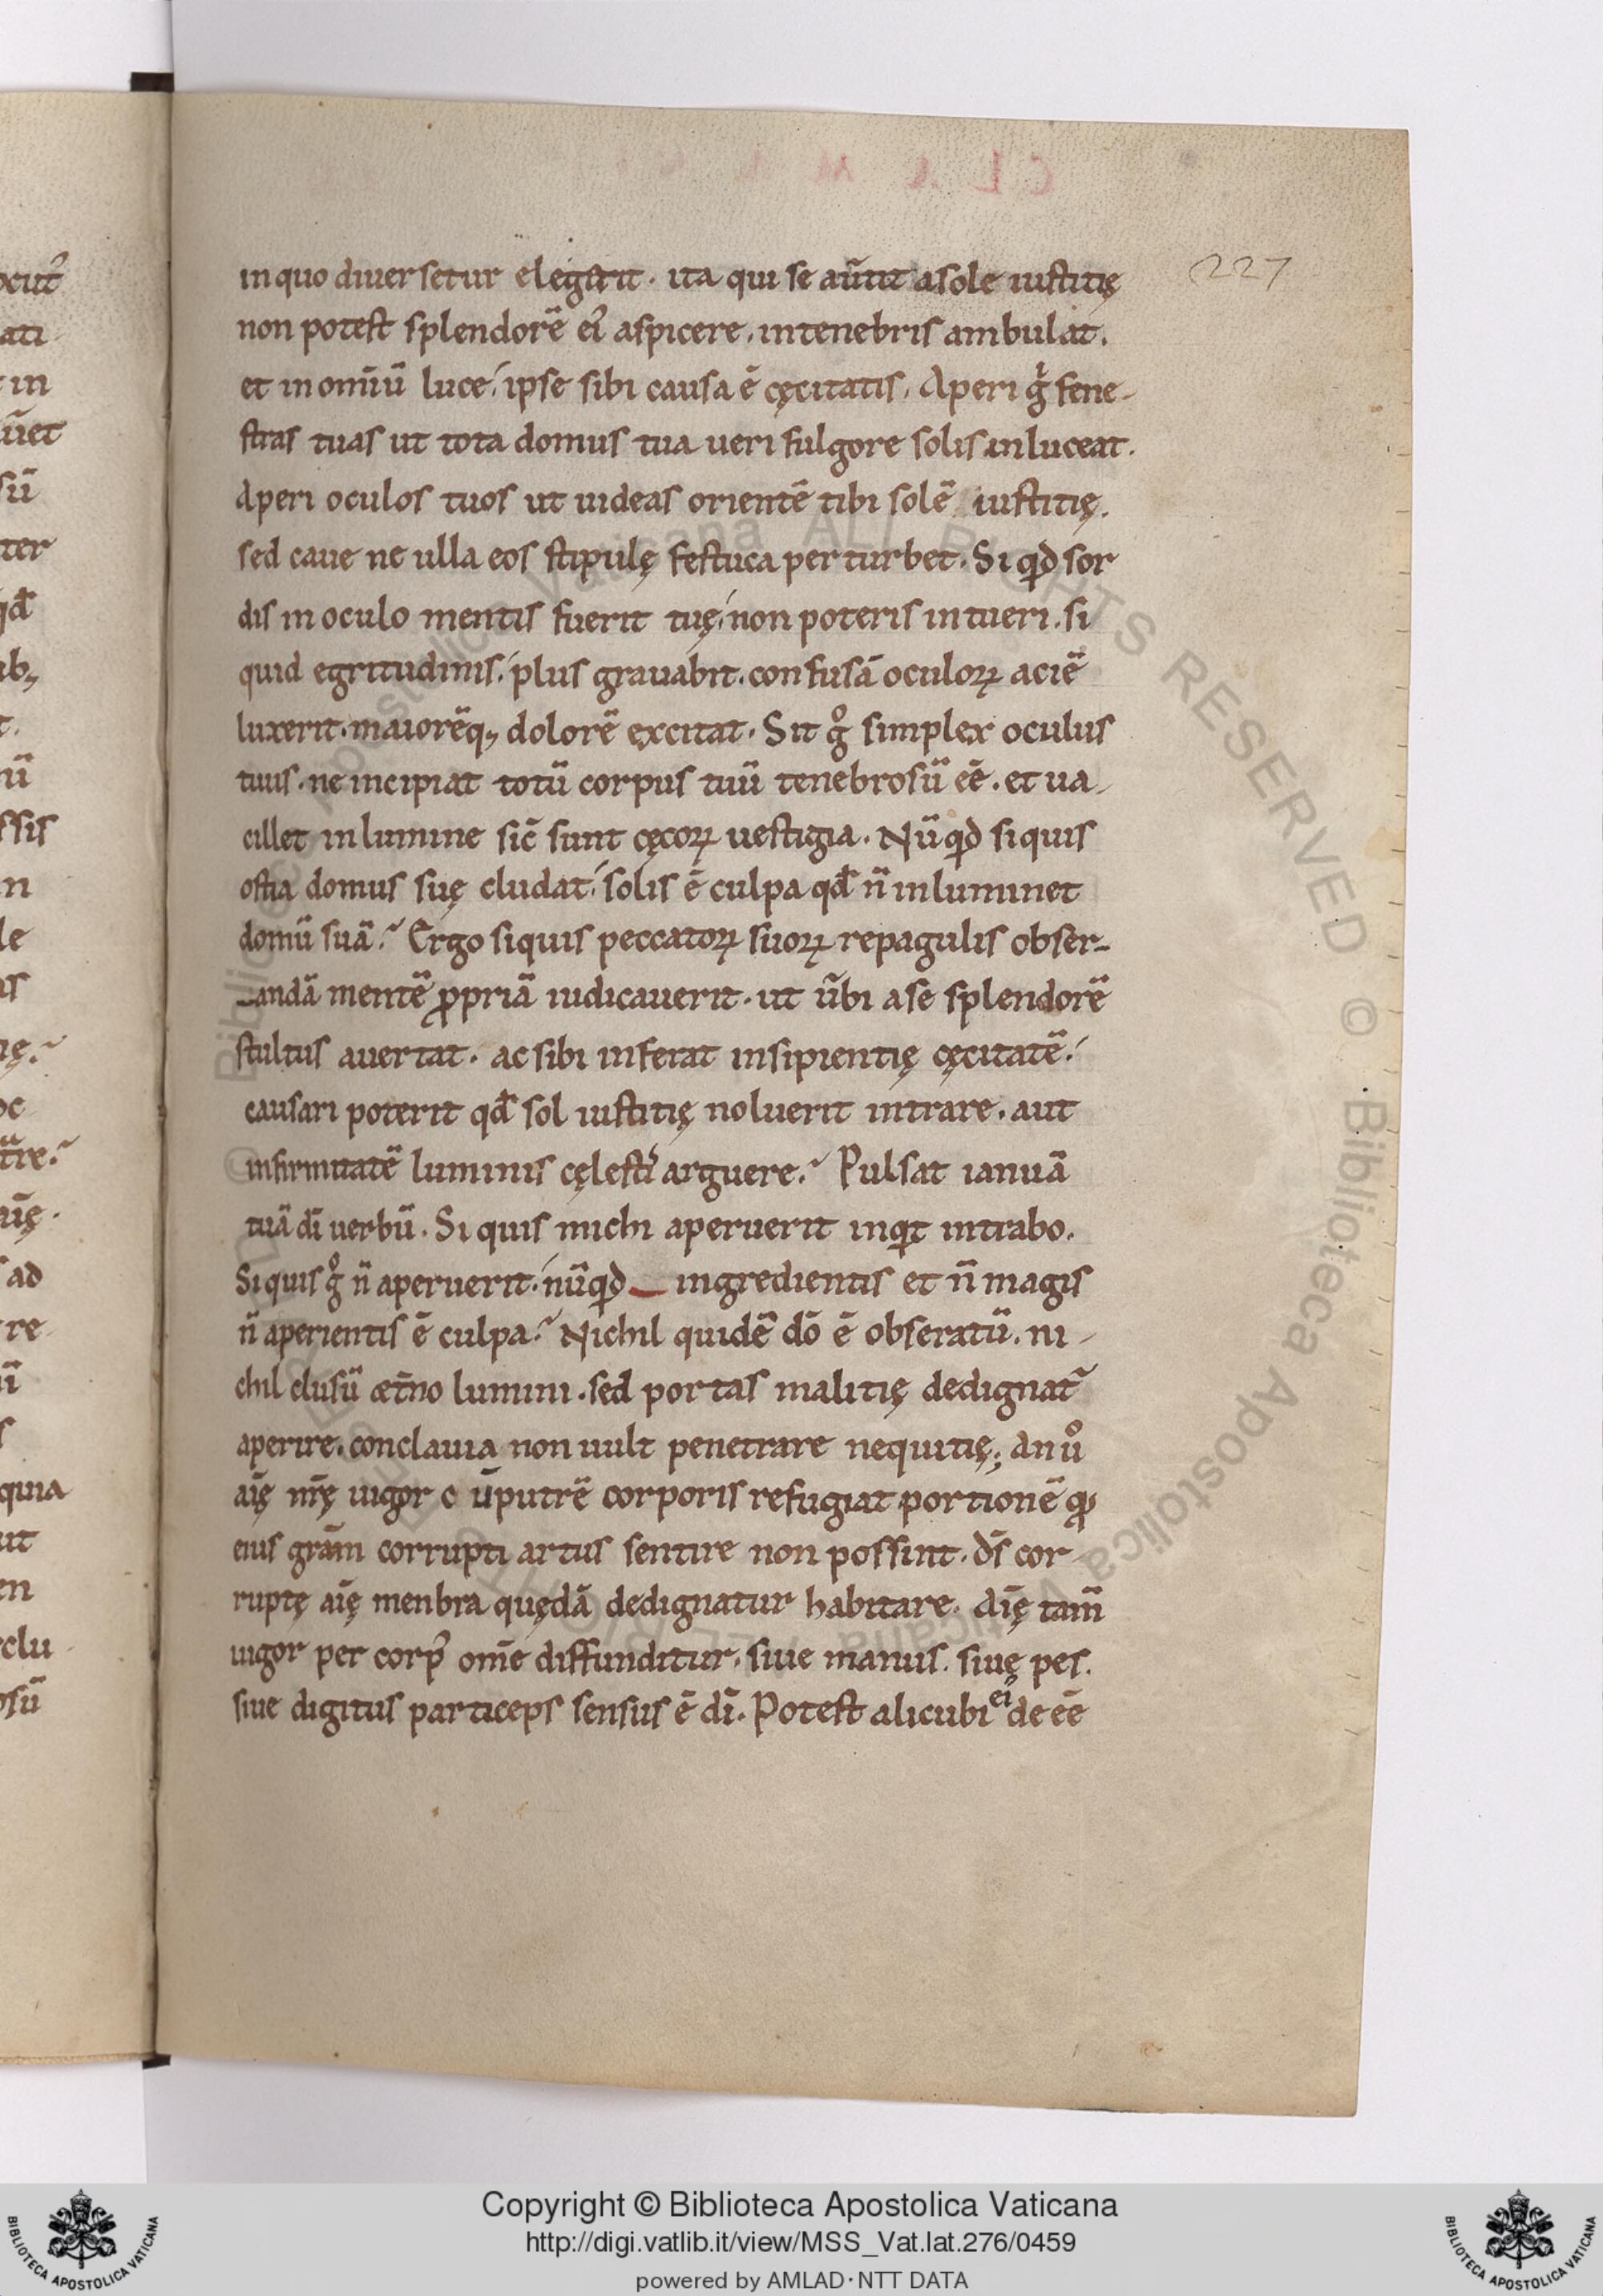 227
in quo diuersetur elegerit. ita qui se aūtit a sole iustitię
non potest splendorē ei᷒ aspicere. in tenebris ambulat.
et in omīū luce. ipse sibi causa ē cęcitatis. Aperi gͥ fene-
stras tuas ut tota domus tua ueri fulgore solis inluceat.
Aperi oculos tuos ut uideas orientē tibi solē iustitię.
sed caue ne ulla eos stipulę festuca perturbet. Si qͥd sor
dis in oculo mentis fuerit tuę. non poteris intueri. si
quid egritudinis. plus grauabit. confusā oculoꝝ aciē
luxerit. maiorēq; dolorē excitat. Sit gͦ simplex oculus
tuus. ne incipiat totū corpus tuū tenebrosū eē. et ua-
cillet in lumine sic̄ sunt cęcoꝝ uestigia. Nūqͥd si quis
ostia domus suę cludat. solis ē culpa qđ n̄ inluminet
domū suā? Ergo siquis peccatoꝝ suoꝝ repagulis obser-
andā mentē ꝓpriā iudicauerit. ut ūbi a se splendorē
stultus auertat. ac sibi inferat insipientię cęcitatē.
causari poterit qđ sol iustitię noluerit intrare. aut
infirmitatē luminis cęlesti᷒ arguere? Pulsat ianuā
tuā dī uerbū. Si quis michi aperuerit inqͥt intrabo.
Si quis gͦ n̄ aperuerit. nūqͥd ingredientis et n̄ magis
n̄ aperientis ē culpa? Nichil quidē dō ē obseratū. ni-
chil clusū æt̄no lumini. sed portas malitię dedignat᷑
aperire. conclauia non uult penetrare nequitię; An uͦ
aīę nr̄ę uigor c̄ ūputrē corporis refugiat portionē qͥ
eius grām corrupti artus sentire non possint. ds̄ cor-
ruptę aīę menbra quędā dedignatur habitare. Aīę tam̄
uigor per corp᷒ om̄e diffunditur. siue manus. siuę pes.
siue digitus particeps sensus ē dī. Potest alicubi ei᷒ de eē
Copyright © Biblioteca Apostolica Vaticana
http://digi.vatlib.it/view/MSS_Vat.lat.276/0459
powered by AMLAD·NTT DATA
BIBLIOTECA APOSTOLICA VATICANA
BIBLIOTECA APOSTOLICA VATICANA